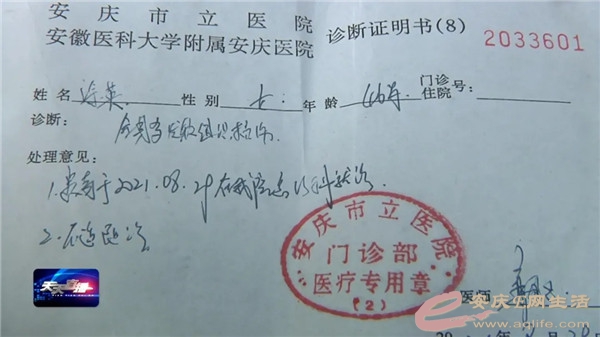 安庆市立医院
安徽医科大学附属安庆医院
诊断证明书(8)
2033601
姓名 涂英 性别 女 年龄 46岁 门诊
住院号:
诊断:
处理意见:
1.患者于2021.08. 在我院急诊科就诊
2.不适随诊
安庆市立医院
门诊部
医疗专用章
(2)
医师
天天直播
e安庆E网生活
www.aqlife.com